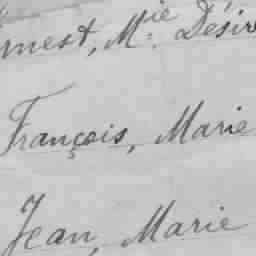 rnest, Mie Désiré
François, Marie
Jean, Marie